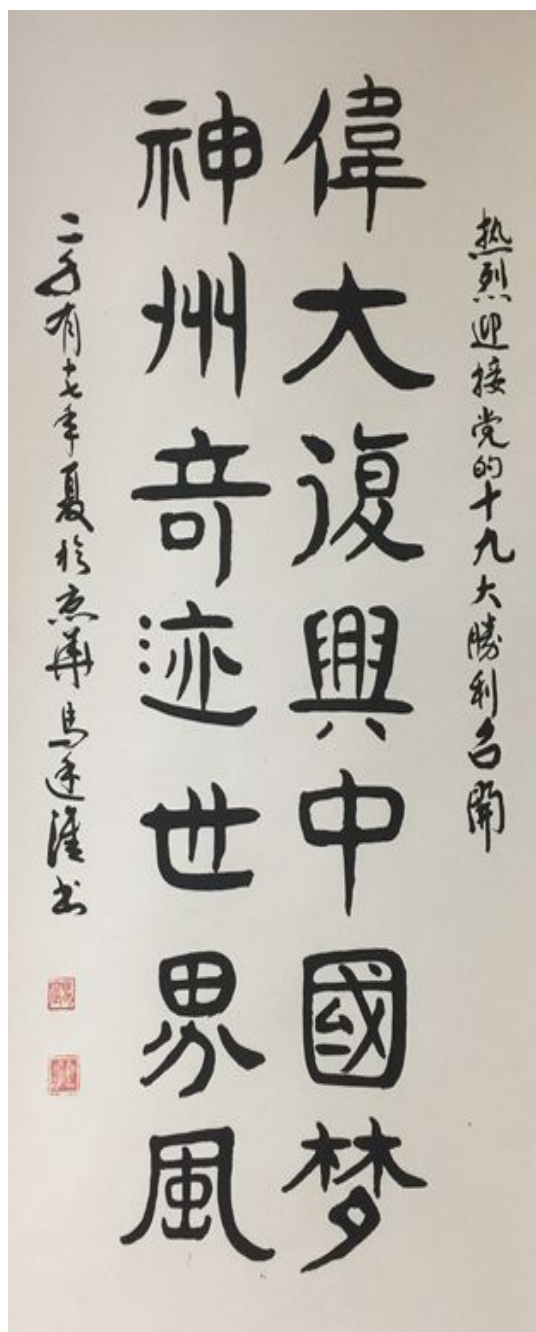 热烈迎接党的十九大勝利召開
偉大復興中國梦
神州奇迹世界風
二〇有十七年夏於京華马连漢书